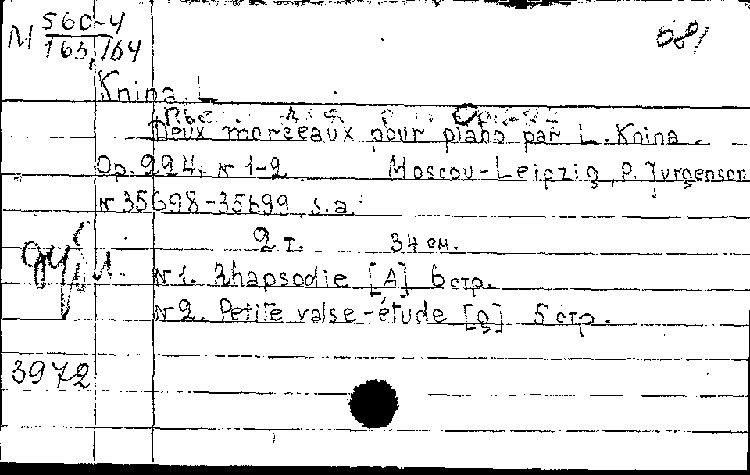 М 560-4
165,164
681
Knina. L
Deux morceaux pour piano par L. Knina.
Op. 224. № 1-2 Moscou-Leipzig, P. Jurgenson
№ 35698-35699 s.a.
2 т. 34 см.
дубл.
№ 1. Rhapsodie [A] 6 стр.
№ 2. Petite valse-étude [g] 5 стр.
3972